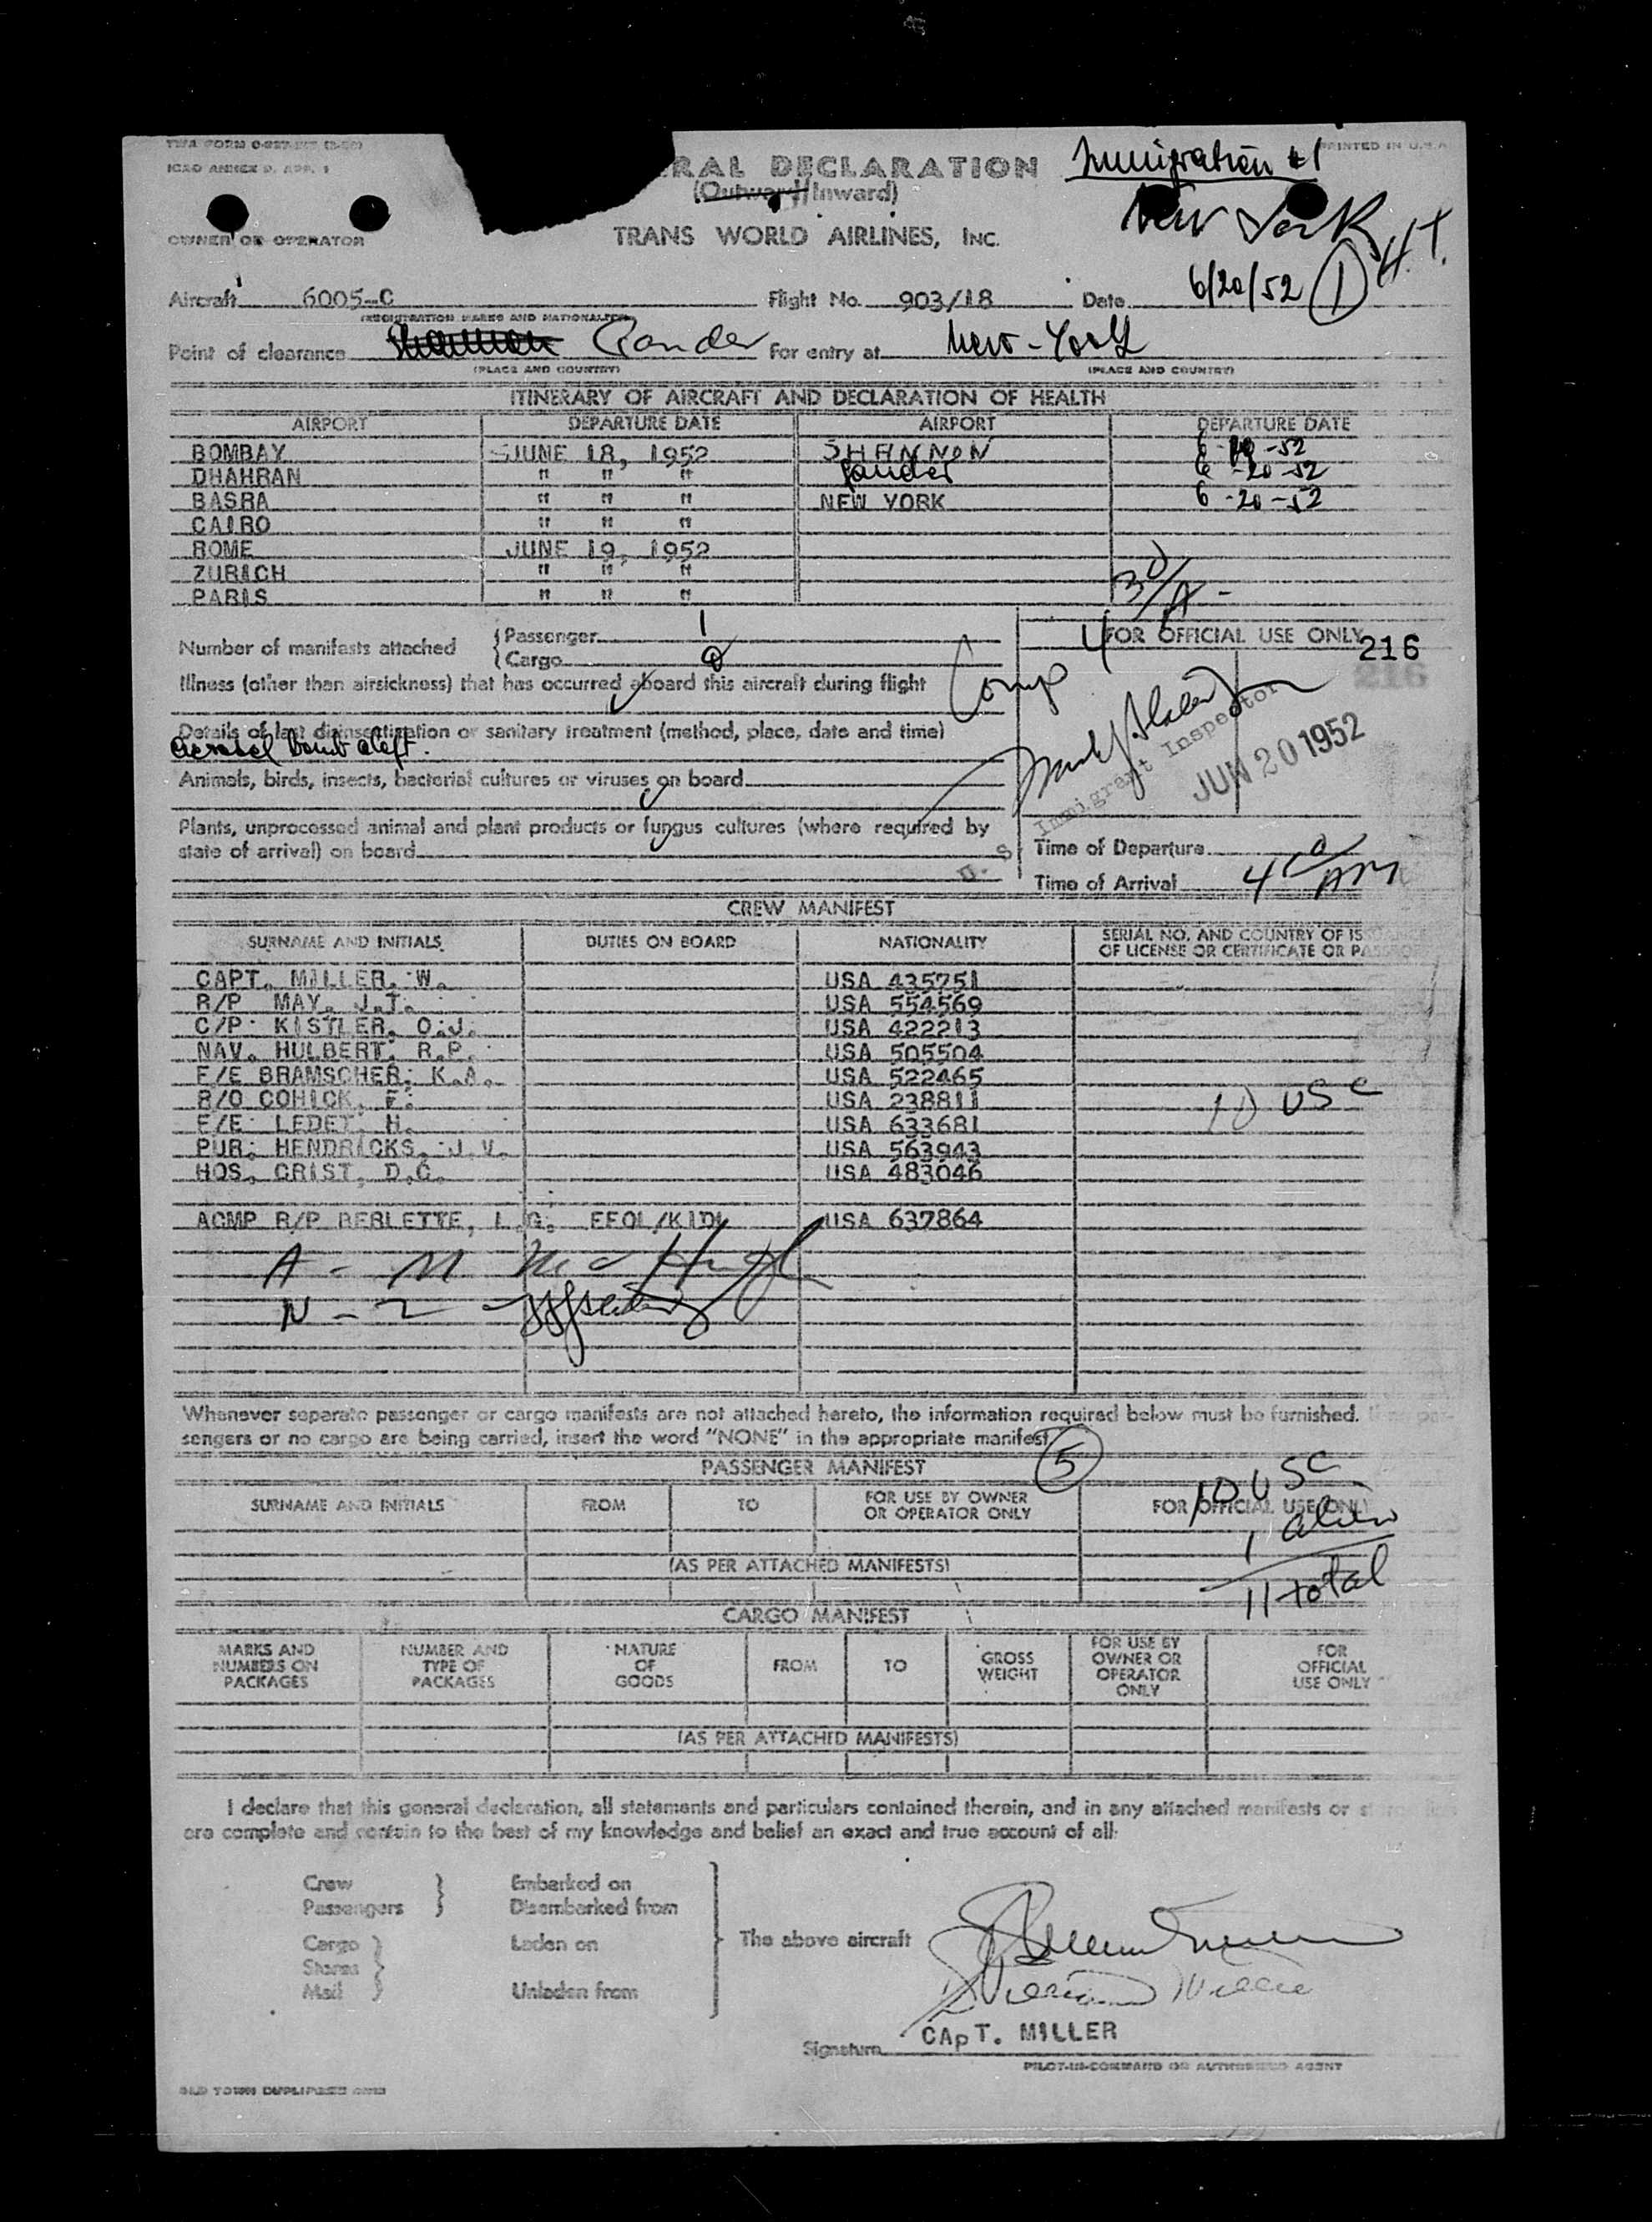 ICAO ANNEX 9, APP. 1
PRINTED IN U.S.A
RAL DECLARATION
(Outward/Inward)
Immigration #1
New York
H.T.
OWNER OR OPERATOR
TRANS WORLD AIRLINES, INC.
Aircraft 6005-C Flight No. 903/18 Date 6/20/52 (1)
(REGISTRATION MARKS AND NATIONALITY)
Point of clearance Shannon Gander For entry at New-York
(PLACE AND COUNTRY) (PLACE AND COUNTRY)
ITINERARY OF AIRCRAFT AND DECLARATION OF HEALTH
AIRPORT DEPARTURE DATE AIRPORT DEPARTURE DATE
BOMBAY JUNE 18, 1952 SHANNON 6- -52
DHAHRAN " " " Gander 6-20-52
BASRA " " " NEW YORK 6-20-52
CAIRO " " "
ROME JUNE 19, 1952
ZURICH " " "
PARIS " " "
Number of manifests attached { Passenger 1
{ Cargo
FOR OFFICIAL USE ONLY
216
216
Illness (other than airsickness) that has occurred aboard this aircraft during flight
Comp
Details of last disinsectization or sanitary treatment (method, place, date and time)
aerosol bomb aloft.
Immigrant Inspector
JUN 20 1952
U. S.
Animals, birds, insects, bacterial cultures or viruses on board
Plants, unprocessed animal and plant products or fungus cultures (where required by
state of arrival) on board
Time of Departure
Time of Arrival 4 AM
CREW MANIFEST
SURNAME AND INITIALS DUTIES ON BOARD NATIONALITY SERIAL NO. AND COUNTRY OF ISSUANCE
OF LICENSE OR CERTIFICATE OR PASSPORT
CAPT. MILLER, W. USA 435751
R/P MAY, J.T. USA 554569
C/P KISTLER, O.J. USA 422213
NAV. HULBERT, R.P. USA 505504
F/E BRAMSCHER, K.A. USA 522465
R/O COHICK, F. USA 238811 10 USC
F/E LEDET, H. USA 633681
PUR. HENDRICKS, J.V. USA 563943
HOS. CRIST, D.C. USA 483046
ACMP R/P BERLETTE, L.G. EFOL/KIDL USA 637864
A - M
N - 2
Whenever separate passenger or cargo manifests are not attached hereto, the information required below must be furnished. If no pas-
sengers or no cargo are being carried, insert the word "NONE" in the appropriate manifest
(5)
PASSENGER MANIFEST
10 USC
SURNAME AND INITIALS FROM TO FOR USE BY OWNER
OR OPERATOR ONLY FOR OFFICIAL USE ONLY
1 alien
(AS PER ATTACHED MANIFESTS)
11 total
CARGO MANIFEST
MARKS AND
NUMBERS ON
PACKAGES NUMBER AND
TYPE OF
PACKAGES NATURE
OF
GOODS FROM TO GROSS
WEIGHT FOR USE BY
OWNER OR
OPERATOR
ONLY FOR
OFFICIAL
USE ONLY
(AS PER ATTACHED MANIFESTS)
I declare that this general declaration, all statements and particulars contained therein, and in any attached manifests or
are complete and contain to the best of my knowledge and belief an exact and true account of all:
Crew } Embarked on
Passengers } Disembarked from
Cargo } Laden on The above aircraft
Stores }
Mail } Unladen from
William Miller
CApT. MILLER
Signature
PILOT-IN-COMMAND OR AUTHORIZED AGENT